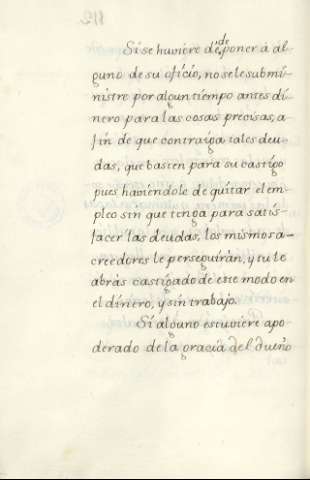 Si se huviere de de poner à al-
guno de su oficio, no se le submi-
nistre por algun tiempo antes di-
nero para las cosas precisas, a-
fin de que contraiga tales deu-
das, que basten para su castigo
pues haviendole de quitar el em-
pleo sin que tenga para satis-
facer las deudas, los mismos a-
creedores le perseguirán, y tu le
abrás castigado de este modo en
el dinero, y sin trabajo.
Si alguno estuviere apo-
derado de la gracia del dueño